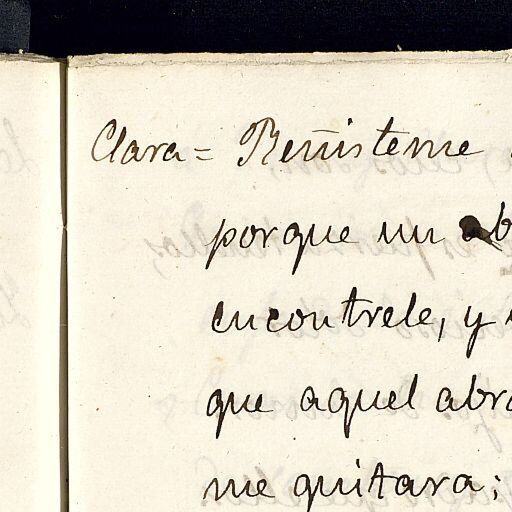 Clara = Reñisteme
porque un ab
encontrele, y
que aquel abra
me quitara;